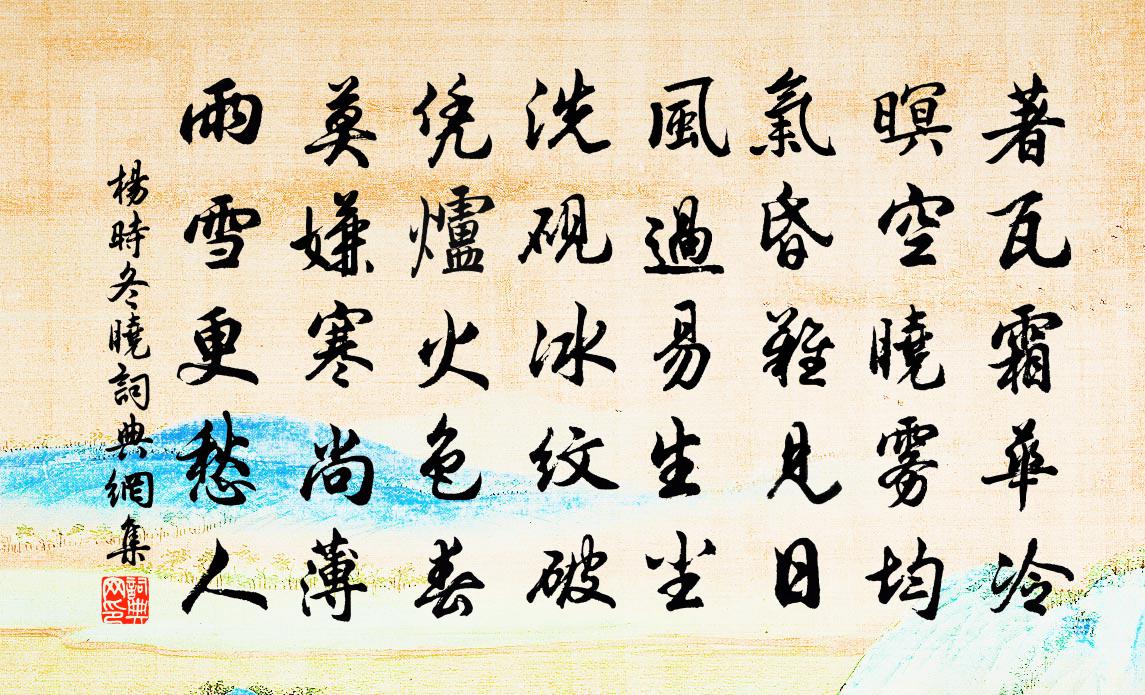 著瓦霜華冷
暝空曉雾均
氣昏難見日
風過易生塵
洗硯冰紋破
凭爐火色春
莫嫌寒尚薄
雨雪更愁人
楊時冬曉詞典網集
詞典